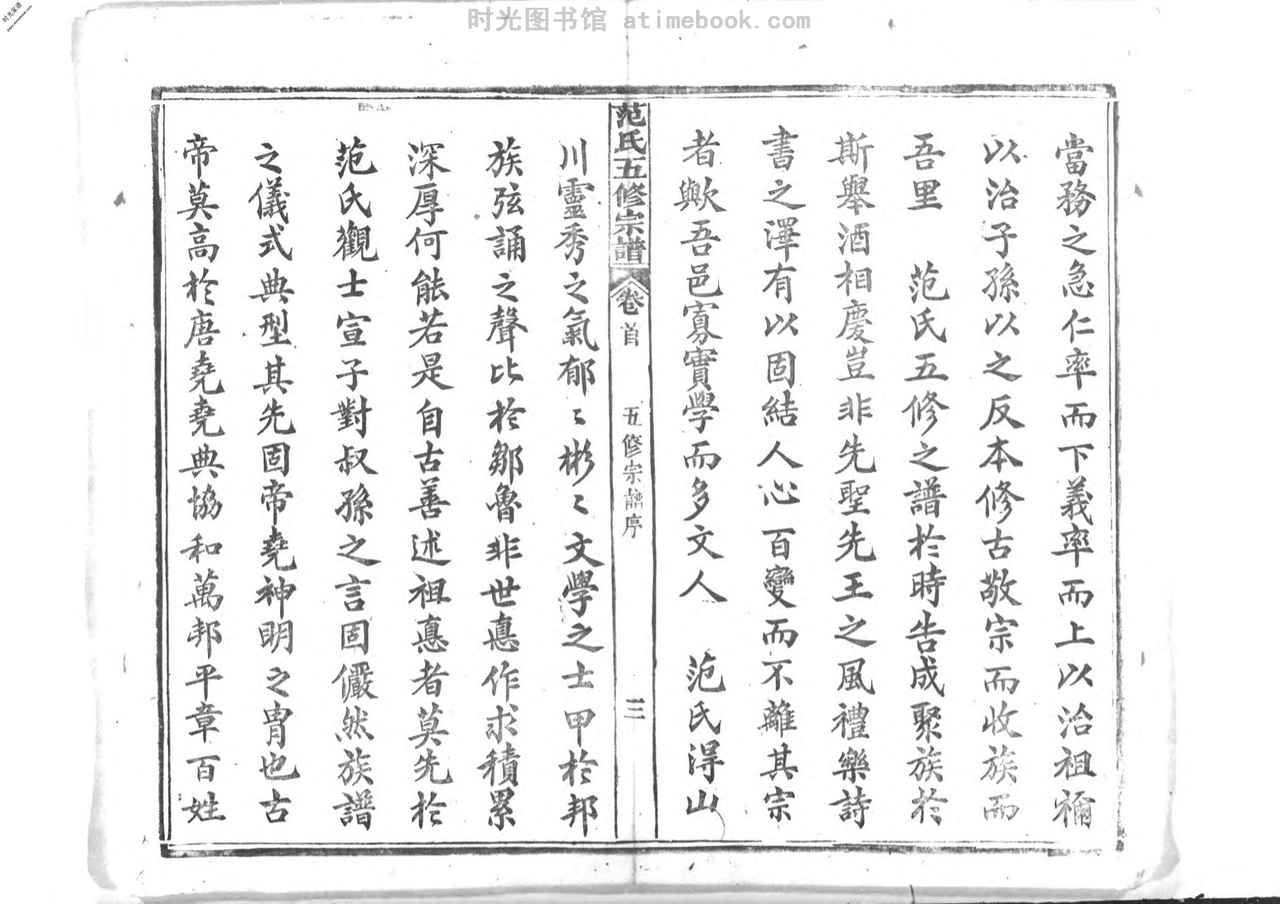 时光图书馆 atimebook.com
當務之急仁率而下義率而上以治祖禰
以治子孫以之反本修古敬宗而收族而
吾里　范氏五修之譜於時告成聚族於
斯舉酒相慶豈非先聖先王之風禮樂詩
書之澤有以固結人心百變而不離其宗
者歟吾邑寡實學而多文人　范氏得山
范氏五修宗譜　卷首　五修宗譜序　三
川靈秀之氣郁〻彬〻文學之士甲於邦
族弦誦之聲比於鄒魯非世悳作求積累
深厚何能若是自古善述祖悳者莫先於
范氏觀士宣子對叔孫之言固儼然族譜
之儀式典型其先固帝堯神明之胄也古
帝莫高於唐堯堯典協和萬邦平章百姓